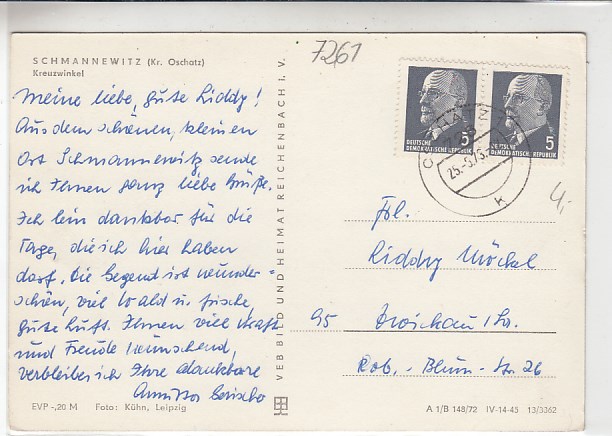 SCHMANNEWITZ (Kr. Oschatz)
Kreuzwinkel
Meine liebe, gute Liddy!
Aus dem schönen, kleinen
Ort Schmannewitz sende
ich Ihnen ganz liebe Grüße.
Ich bin dankbar für die
Tage, die ich hier haben
darf. Die Gegend ist wunder-
schön, viel Wald u. frische,
gute Luft. Ihnen viel Kraft
und Freude wünschend,
verbleibe ich Ihre dankbare
EVP -,20 M Foto: Kühn, Leipzig
VEB BILD UND HEIMAT REICHENBACH I. V.
7261
DEUTSCHE
DEMOKRATISCHE REPUBLIK
5
DEUTSCHE
DEMOKRATISCHE REPUBLIK
5
OSCHATZ
25.-5.73.
K
4,-
Frl.
Liddy Möckel
95 Zwickau / Sa.
Rob.-Blum-Str. 26
A 1/B 148/72 IV-14-45 13/3362